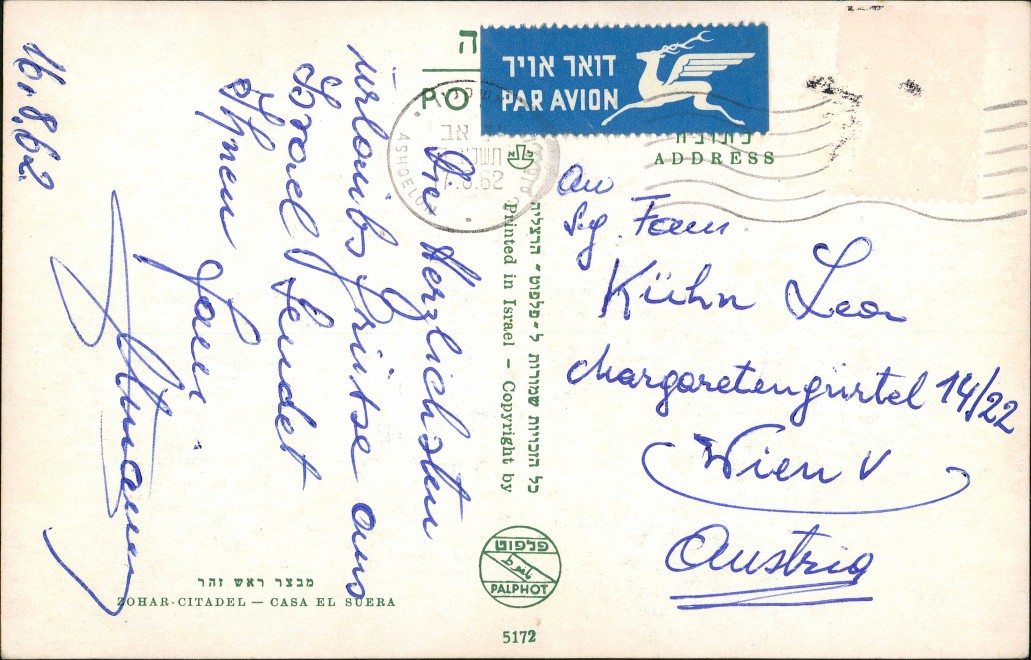 16.8.62
Die Herzlichsten
urlaubsGrüsse aus
Israel Sendet
Ihnen
ה
PO
דואר אויר
PAR AVION
ADDRESS
ASHQELON
אב
An
Sg. Fam.
Kühn Leon
Margaretengürtel 14/22
Wien V
Austria
כל הזכויות שמורות ל־"פלפוט" הרצליה
Printed in Israel – Copyright by
פלפוט
PALPHOT
מבצר ראש זהר
ZOHAR-CITADEL — CASA EL SUERA
5172